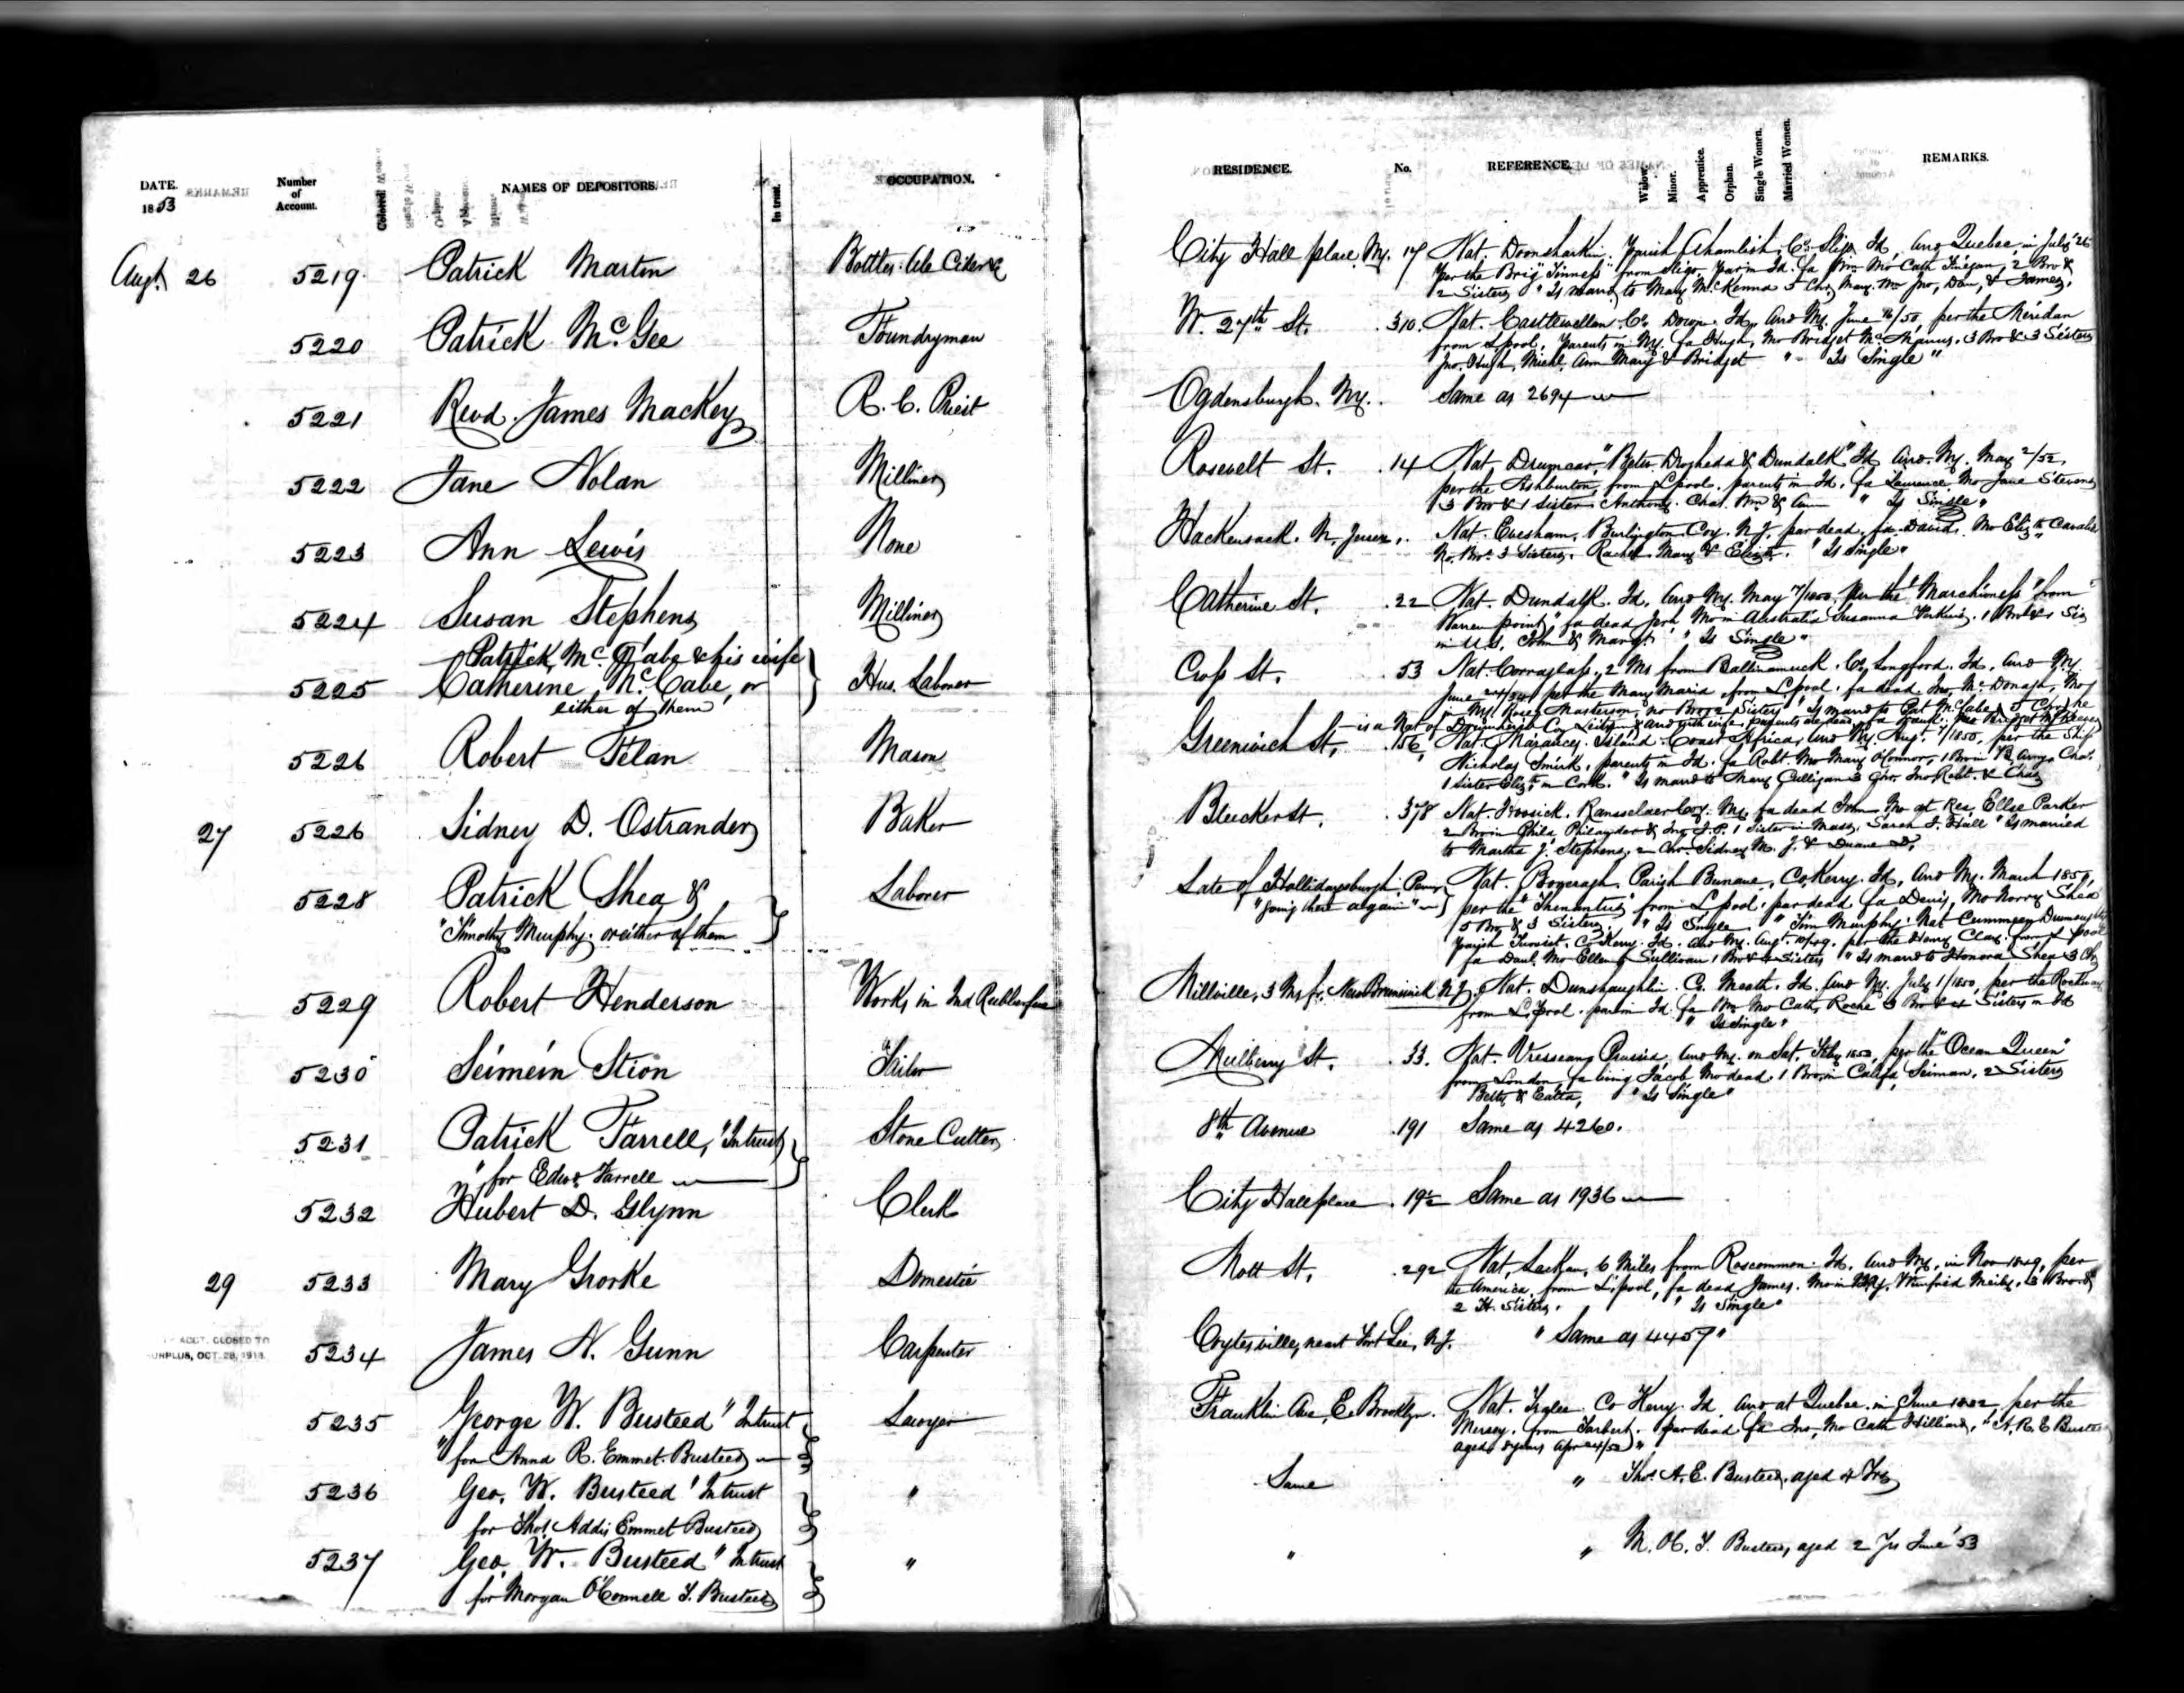 DATE.
1853
Number
of
Account.
Colored
NAMES OF DEPOSITORS.
In trust.
OCCUPATION.
RESIDENCE.
No.
REFERENCE.
Widow.
Minor.
Apprentice.
Orphan.
Single Women.
Married Women.
REMARKS.
Augt 26 5219 Patrick Martin Bottler Ale Cider &
City Hall place, Ny. 17 Nat. Parish Co. Sligo Id, Arrd Quebec, in July '26
per the Brig from Sligo, par in Id. fa Wm Mo Cath Finegan, 2 Bro &
2 Sisters " Is marrd to Mary McKenna 5 Chn, Mary, Wm Jno, Dan, & James,
5220 Patrick McGee Foundryman
W. 27th St. 310. Nat. Castlewellan Co. Down. Id, Arrd Ny. June 16/50, per the Meridan
from Lpool, Parents in Ny. fa Hugh, Mo Bridget McManus, 3 Bro & 3 Sisters
Jno. Hugh, Michl. Ann Mary & Bridget " Is Single "
5221 Revd. James Mackey R. C. Priest
Ogdensburgh. Ny. Same as 2694
5222 Jane Nolan Milliner
Rosevelt St. 14 Nat Drumcar, "Betw. Drogheda & Dundalk" Id Arrd. Ny. May 2/52,
per the Ashburton, from Lpool. parents in Id. fa Laurence Mo Jane Stevens
3 Bro & 1 sister Anthony. Chas. Wm & Ann " Is Single "
5223 Ann Lewis None
Hackensack. N. Jersey. Nat. Evesham, Burlington Coy. N.J, par dead, fa. David, Mo Elizth
No. Bro. 3 Sisters, Rachel Mary & Elizth. " Is Single "
5224 Susan Stephens Milliner
Catherine St. 22 Nat. Dundalk. Id, Arrd Ny. May per the "Marchioness" from
Warren point, fa dead Mo in Australia Susanna 1 Bro & 1 Sis
in U.S, John & Margt. " Is Single "
Patrick McCabe & his wife
5225 Catherine McCabe, or Hus. Laborer
either of them
Cross St. 53 Nat. 2 Ms from Ballinamuck. Co. Longford. Id, Arrd Ny
June per the Mary Maria, from Lpool. fa dead Jno. McDonagh, Mo
in Ny. Masterson, no Bro, 2 Sisters " Is marrd to Pat McCabe 5 Chn, he
is a Nat of Co. & arrd with wife, parents are dead, fa Mo Bridget
5226 Robert Felan Mason
Greenwich St. 156 Nat. Island. Coast Africa, Arrd Ny. Augt. per the Ship
Nicholas parents in Id. fa Robt. Mo Mary OConnor, 1 Bro in
1 Sister Eliz. in Cork. " Is marrd to Mary Culligan 3 Chn. Jno, Robt. & Chas
27 5226 Sidney D. Ostrander Baker
Bleecker St. 378 Nat. Hoosick. Ransselaer Coy. Ny. fa dead Mo at Res, Parker
2 Bro in Phila, Philander & Jno J. P. 1 Sister in Mass. Sarah J. Hall " Is married
to Martha J. Stephens, 2 Chn. Sidney M. J. & Duane D.
5228 Patrick Shea & Laborer
"Timothy Murphy or either of them
Late of Hollidaysburgh, Penn,
"going there again"
Nat. Parish Co. Kerry. Id, Arrd Ny. March
per the from Lpool. par dead fa Denis, Mo Norry Shea
5 Bro & 3 Sisters, " Is Single " Tim Murphy. Nat
parish Co Kerry. Id. Arrd Ny. Augt. 10/49. per the Henry Clay. from Lpool
fa Danl, Mo Ellen Sullivan 1 Bro & 4 Sisters " Is marrd to Honora Shea 3 Chn
5229 Robert Henderson Works in Ind Rubber
Millville, 3 Ms fr. New Brunswick N J. Nat. Dunshaughlin. Co. Meath. Id. Arrd Ny. July 1/1850, per the
from Lpool. par in Id. fa Wm Mo Cath, Roche 3 Bro & 4 Sisters in Id
" Is Single "
5230 Seimein Stion Tailor
Mulberry St. 33. Nat. Prusia, Arrd Ny. on Sat, per the "Ocean Queen"
from London, fa living Jacob Mo dead. 1 Bro, in Calif, Seiman, 2 Sisters
Betty & " Is Single "
5231 Patrick Farrell, "In trust Stone Cutter
" for Edwd Farrell
8th Avenue 191 Same as 4260.
5232 Hubert D. Glynn Clerk
City Hall place 19½ Same as 1936
29 5233 Mary Grorke Domestic
Mott St. 292 Nat, 6 Miles from Roscommon. Id. Arrd Ny, in Nov 1849, per
the America, from Lpool, fa dead James. Mo in Winfred 3 Bro &
2 H. Sisters. " Is Single "
ACCT. CLOSED TO
SURPLUS, OCT. 28, 191
5234 James N. Gunn Carpenter
Coytesville, near Fort Lee, N.J. " Same as 4457 "
5235 George W. Busteed "In trust Lawyer
" for Anna R. Emmet Busteed
Franklin Ave, E. Brooklyn. Nat. Tralee Co Kerry. Id. Arrd at Quebec in June per the
Mersey, from Tarbert. par dead fa Jno, Mo Cath Hilliard, " A. R. E Busteed
aged 8 years Apr
5236 Geo. W. Busteed "In trust "
for Thos. Addis Emmet Busteed
Same " Thos A. E. Busteed, aged 4 Yrs
5237 Geo. W. Busteed "In trust "
for Morgan O'Connell F. Busteed
" " M. OC. F. Busteed, aged 2 Yrs June '53